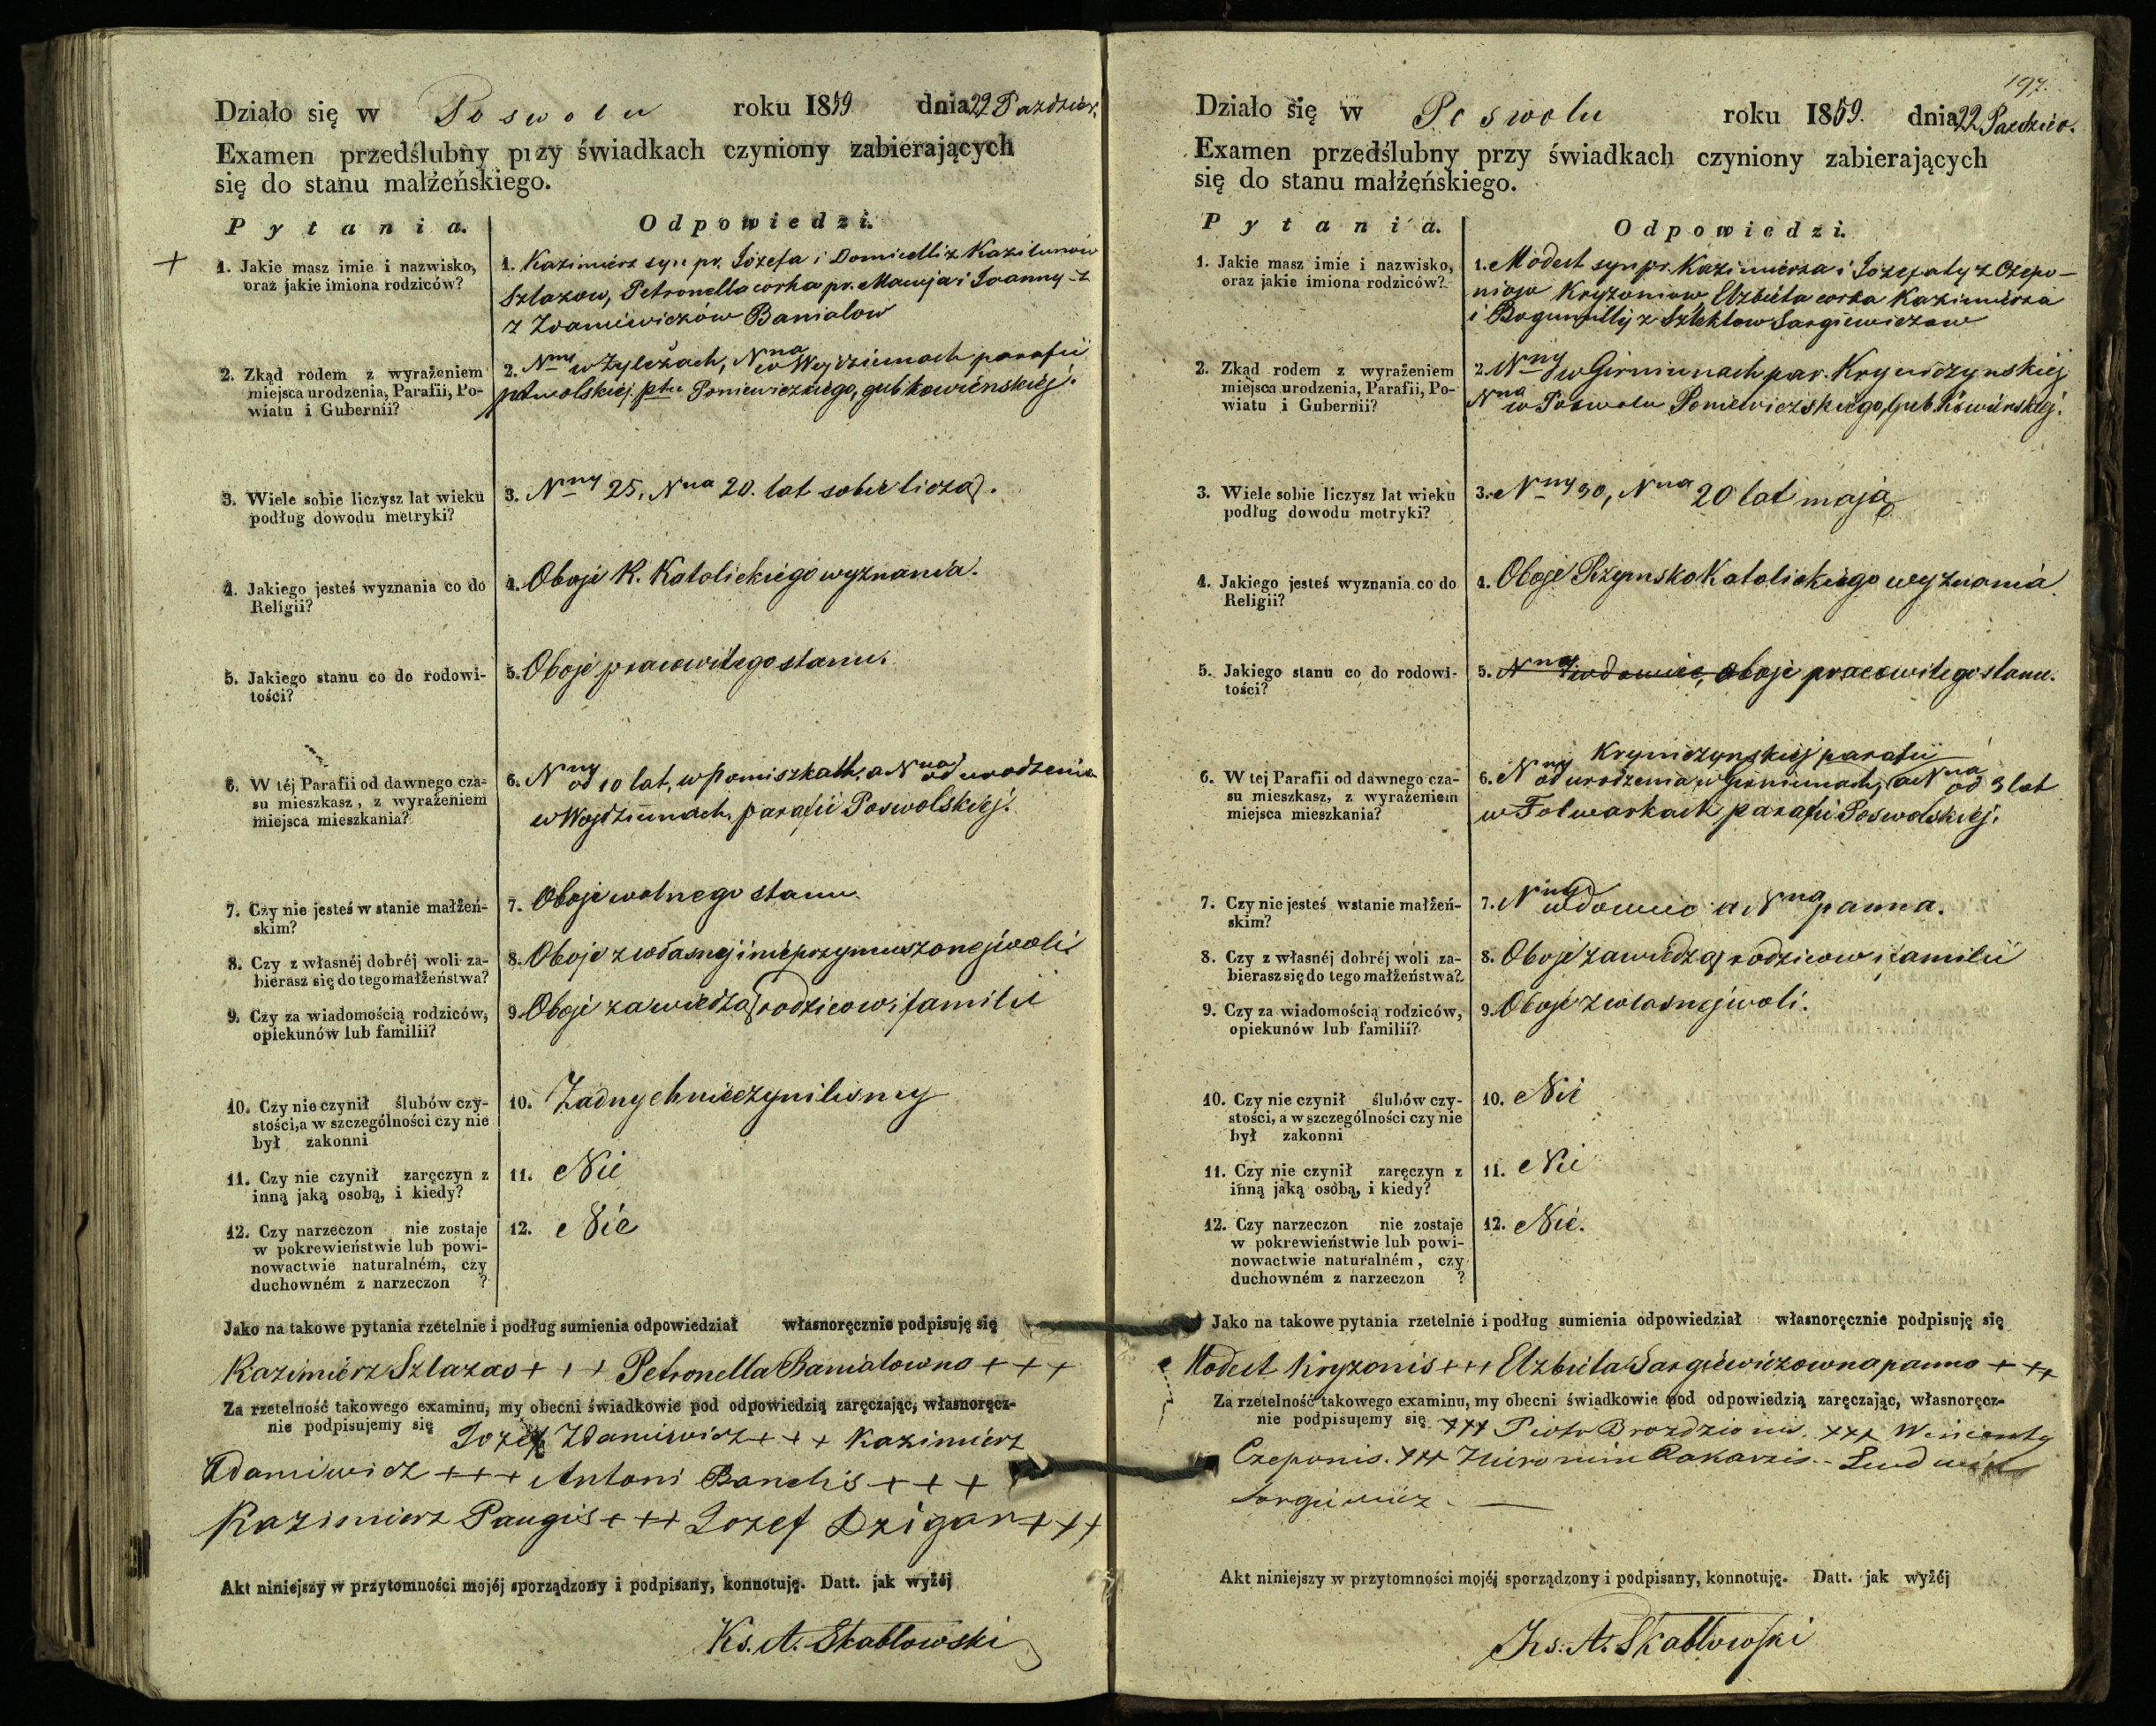 Działo się w Poswolu roku 1859 dnia 22 Paździer.
Examen przedślubny przy świadkach czyniony zabierających
się do stanu małżeńskiego.
Pytania. Odpowiedzi.
+
1. Jakie masz imie i nazwisko,
oraz jakie imiona rodziców?
1. Kazimierz syn pr. Józefa i Domicelli z Kazilunów
Szlazow, Petronella corka pr. Macieja i Joanny z
z Zdaniewiczów Banialow
2. Zkąd rodem z wyrażeniem
miejsca urodzenia, Parafii, Po-
wiatu i Gubernii?
2. Nny w Zyležach, Nna w Woydziunach parafii
poswolskiej ptu Poniewiezkiego, gub kowienskiej.
3. Wiele sobie liczysz lat wieku
podług dowodu metryki?
3. Nny 25, Nna 20. lat sobie liczą.
4. Jakiego jesteś wyznania co do
Religii?
4. Oboje R. Katolickiego wyznania.
5. Jakiego stanu co do rodowi-
tości?
5. Oboje pracowitego stanu.
6. W téj Parafii od dawnego cza-
su mieszkasz, z wyrażeniem
miejsca mieszkania?
6. Nny od 10 lat, w Pomiszkach, a Nna od urodzenia
w Wojdziunach, parafii Poswolskiej.
7. Czy nie jesteś w stanie małżeń-
skim?
7. Oboje wolnego stanu.
8. Czy z własnéj dobréj woli za-
bierasz się do tego małżeństwa?
8. Oboje z własnej i nieprzymuszonej woli
9. Czy za wiadomością rodziców,
opiekunów lub familii?
9. Oboje za wiedzą rodzicow i familii
10. Czy nie czynił ślubów czy-
stości, a w szczególności czy nie
był zakonni
10. Żadnych nie czynilismy
11. Czy nie czynił zaręczyn z
inną jaką osobą, i kiedy?
11. Nie
12. Czy narzeczon nie zostaje
w pokrewieństwie lub powi-
nowactwie naturalném, czy
duchowném z narzeczon ?
12. Nie
Jako na takowe pytania rzetelnie i podług sumienia odpowiedział własnoręcznie podpisuję się
Kazimierz Szlazas + + + Petronella Banialowna + + +
Za rzetelność takowego examinu, my obecni świadkowie pod odpowiedzią zaręczając, własnoręcz-
nie podpisujemy się Jozef Zdaniewicz + + + Kazimierz
Zdaniewicz + + + Antoni Banelis + + +
Kazimierz Paugis + + + Jozef Dzigar + + +
Akt niniejszy w przytomności mojéj sporządzony i podpisany, konnotuję. Datt. jak wyżéj
Ks. A. Skabłowski
197.
Działo się w Poswolu roku 1859. dnia 22 Paździer.
Examen przedślubny przy świadkach czyniony zabierających
się do stanu małżeńskiego.
Pytania. Odpowiedzi.
1. Jakie masz imie i nazwisko,
oraz jakie imiona rodziców?
1. Modest syn pr. Kazimierza i Jozefaty z Czepo-
niow Kryzoniow, Elzbieta corka Kazimierza
i Bogumilly z Szlektow Sargiewiczow
2. Zkąd rodem z wyrażeniem
miejsca urodzenia, Parafii, Po-
wiatu i Gubernii?
2. Nny w Girniunach par. Kryniczynskiej
Nna w Poswolu Poniewiezskiego, gub. Kowienskiej.
3. Wiele sobie liczysz lat wieku
podług dowodu metryki?
3. Nny 30, Nna 20 lat mają
4. Jakiego jesteś wyznania co do
Religii?
4. Oboje Rzymsko Katolickiego wyznania.
5. Jakiego stanu co do rodowi-
tości?
5. Nny wdowiec, oboje pracowitego stanu.
6. W tej Parafii od dawnego cza-
su mieszkasz, z wyrażeniem
miejsca mieszkania?
Kryniczynskiej parafii
6. Nny od urodzenia w Girniunach, a Nna od 3 lat
w Folwarkach parafii Poswolskiej.
7. Czy nie jesteś wstanie małżeń-
skim?
7. Nny wdowiec a Nna panna.
8. Czy z własnéj dobréj woli za-
bierasz się do tego małżeństwa?
8. Oboje za wiedzą rodzicow i familii
9. Czy za wiadomością rodziców,
opiekunów lub familii?
9. Oboje z wlasnej woli.
10. Czy nie czynił ślubów czy-
stości, a w szczególności czy nie
był zakonni
10. Nie
11. Czy nie czynił zaręczyn z
inną jaką osobą, i kiedy?
11. Nie
12. Czy narzeczon nie zostaje
w pokrewieństwie lub powi-
nowactwie naturalném, czy
duchowném z narzeczon ?
12. Nie.
Jako na takowe pytania rzetelnie i podług sumienia odpowiedział własnoręcznie podpisuję się
Modest Kryzonis + + + Elzbieta Sargiewiczowna panna + + +
Za rzetelność takowego examinu, my obecni świadkowie pod odpowiedzią zaręczając, własnoręcz-
nie podpisujemy się +++ Piotr Brozdzionis. +++ Wincenty
Czeponis. +++ Hieronim Pakarzis. - Ludwik
Sargiewicz.
Akt niniejszy w przytomności mojéj sporządzony i podpisany, konnotuję. Datt. jak wyżéj
Ks. A. Skabłowski